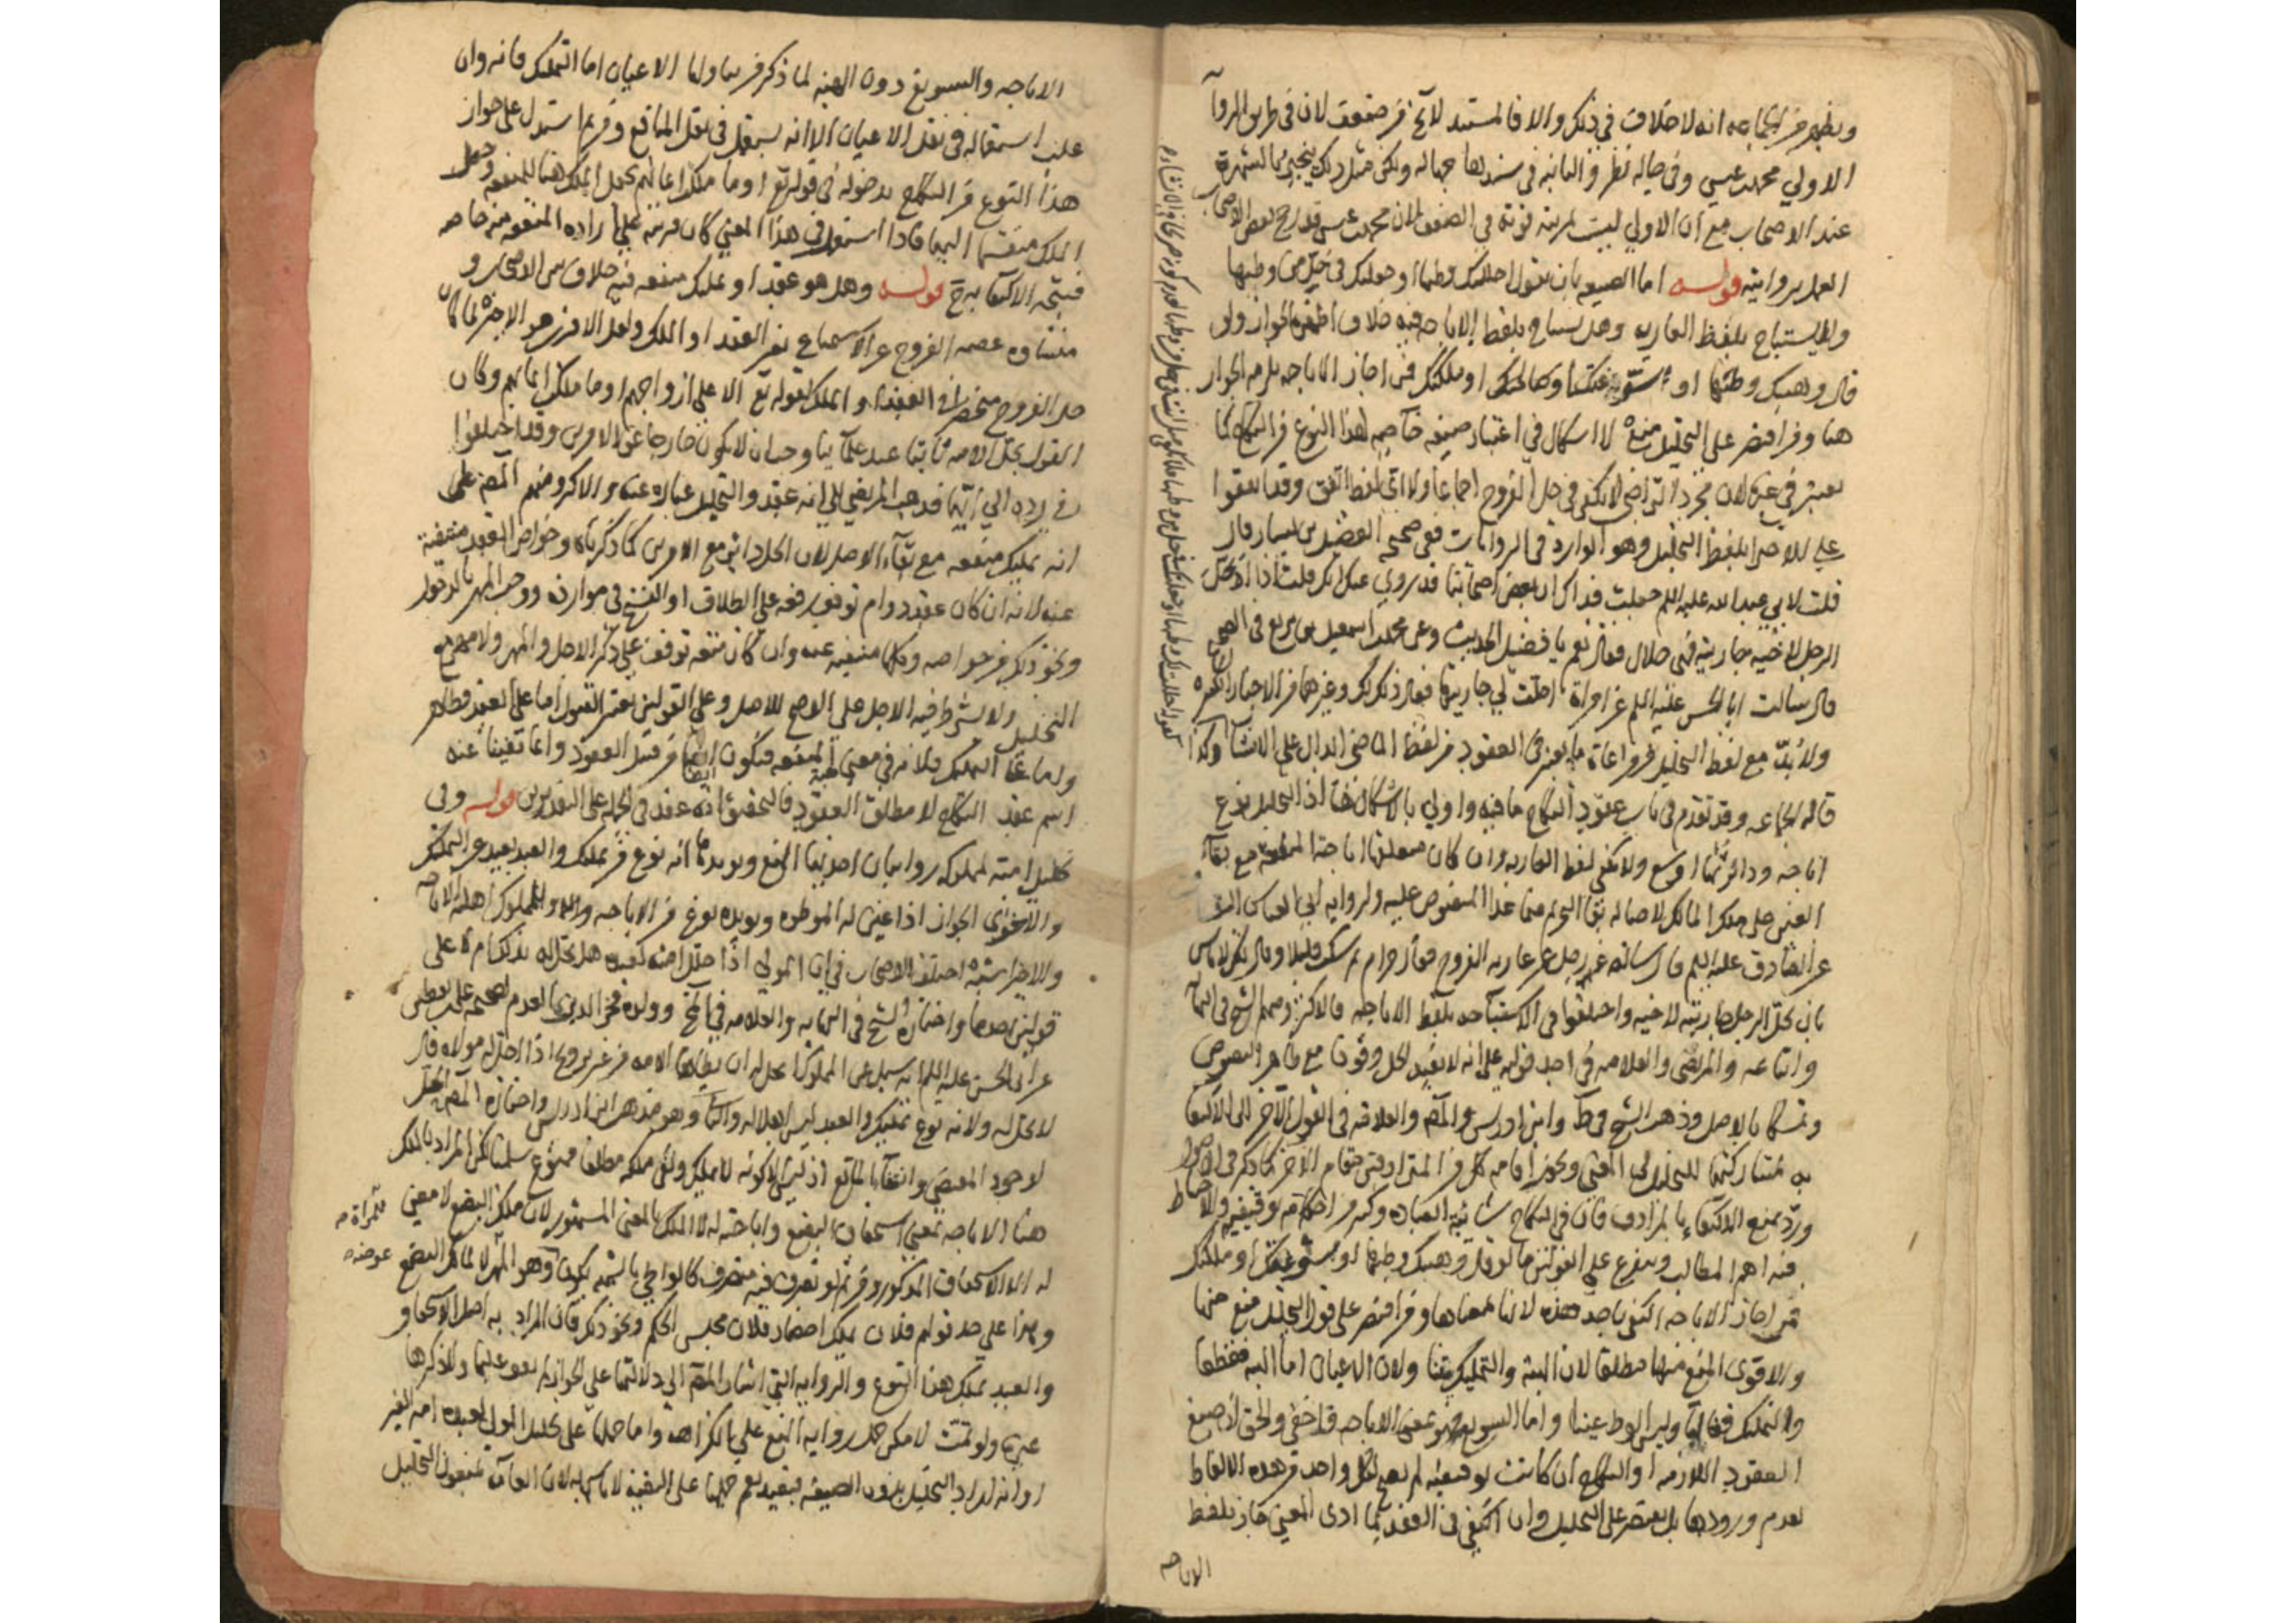 ويظهر من الجماعة انه لا خلاف في ذلك والا فالمستند لا يخ من ضعف لان في طريق الرواية
الاولي محمد بن عيسي وفي حاله نظر والثانية في سندها جهالة ولكن مثل ذلك ينجبر بالشهرة
عند الاصحاب مع ان الاولي ليست بمرتبة قوية في الضعف لان محمد بن عيسى قد رجح بعض الاصحاب
العمل بروايته قوله اما الصيغة بان يقول احللت لك وطئها او جعلتك في حل من وطيها
ولا يستباح بلفظ العارية وهل يستباح بلفظ الاباحة فيه خلاف اظهره الجواز ولو
قال وهبتك وطئها او سوغتكها او ملكتك فمن اجاز الاباحة يلزمه الجواز
هنا ومن اقتصر على التحليل منعه لا اشكال في اعتبار صيغة خاصة لهذا النوع من النكاح كما
يعتبر في غيره لان مجرد التراضي لا يكفي في حل الفروج اجماعا ولا اي لفظ اتفق وقد اتفقوا
على الاجتزا بلفظ التحليل وهو الوارد في الروايات ففي صحيحة الفضيل بن يسار قال
قلت لابي عبد الله عليه السلم جعلت فداك ان بعض اصحابنا قد روي عنك انك قلت اذا احل
الرجل لاخيه جاريته فهي حلال فقال نعم يا فضيل الحديث وعن محمد بن اسمعيل بن بزيع في الصحيح
قال سالت ابا الحسن عليه السلم عن امراة احلت لي جاريتها فقال ذلك لك وغيرهما من الاخبار الكثيرة
ولا بد مع لفظ التحليل من مراعاة ما يعتبر في العقود من لفظ الماضي الدال على الانشاء وكذا
قاله الجماعة وقد تقدم في باب عقود النكاح ما فيه واولي بالاشكال هنا اذ التحليل نوع
اباحة ودائرتها اوسع ولا يكفي لفظ العارية وان كان متعلقها اباحة المنفعة مع بقاء
العين على ملك المالك لاصالة بقاء التحريم فيما عدا المنصوص عليه ولرواية ابي العباس البقباق
عن الصادق عليه السلم قال سأله رجل عن عارية الفروج فقال حرام ثم سكت قليلا وقال لكن لا باس
بان يحل الرجل جاريته لاخيه واختلفوا في الاستباحة بلفظ الاباحة فالاكثر ومنهم الشيخ في النهاية
واتباعه والمرتضى والعلامة في احد قوليه على انه لا يفيد الحل وقوفا مع ظاهر النصوص
وتمسكا بالاصل وذهب الشيخ في ط وابن ادريس والمص والعلامة في القول الاخر الى الاكتفاء
به لمشاركتها للتحليل في المعنى ويجوز اقامة كل من المترادفين مقام الاخر كما ذكر في الاصول
ورد بمنع الاكتفاء بالمرادف فان في النكاح شائبة العبادة وكثير من احكامه توقيفية والاحتياط
فيه اهم المطالب ويتفرع على القولين ما لو قال وهبتك وطيها او سوغتك او ملكتك
فمن اجاز الاباحة اكتفى باحد هذه لانها بمعناها ومن اقتصر على قول التحليل منع منها
والاقوى المنع منها مطلقا لان الهبة والتمليك يتعلقان بالاعيان اما الهبة فقطعا
واما التمليك فغالبا وليس الوطي عينا واما التسويغ فهو بمعنى الاباحة والحق ان صيغ
العقود اللازمة او النكاح ان كانت توقيفية لم يصح لكل واحد من هذه الالفاظ
لعدم ورودها بل يقتصر على التحليل وان اكتفي في العقد بما ادى المعنى جاز بلفظ
الاباحه
الاباحة والتسويغ دون الهبة لما ذكر من تناولها الاعيان اما التمليك فانه وان
غلب استعماله في نقل الاعيان الا انه يستعمل في نقل المنافع ومن ثم استدل على جواز
هذا النوع من النكاح بدخوله في قوله تع او ما ملكت ايمانهم بجعل الملك هنا للمنفعة وجعل
الملك منقسما اليهما فاذا استعمل في هذا المعنى كان قرينة على ارادة المنفعة من خاصه
فيتجه الاكتفا به ح قوله وهل هو عقد او تمليك منفعة فيه خلاف بين الاصحاب و
منشاوه عصمة الفروج عن الاستمتاع بغير العقد او الملك ولعل الاقرب هو الاخير لما كان
حل الفروج منحصرا في العقد او الملك لقوله تع الا على ازواجهم او ما ملكت ايمانهم وكان
القول بحل الامة ثابتا عند علمائنا وجب ان لا يكون خارجا عن الامرين وقد اختلفوا
في رده الي ايهما فذهب المرتضي الي انه عقد والتحليل عبارة عنه والاكثر ومنهم المص على
انه تمليك منفعة مع بقاء الاصل لان الحل دائر مع الامرين كما ذكرناه وخواص العقد منتفية
عنه لانه ان كان عقد دوام توقف رفعه على الطلاق او الفسخ في موارده ووجب المهر بالدخول
ونحو ذلك من خواصه وكلها منتفية عنه وان كان متعة توقف على ذكر الاجل والمهر ولا مهر مع
التحليل ولا يشترط فيه الاجل على الاصح للاصل وعلى القولين يعتبر القبول اما على العقد فظاهر
واما على التمليك فلانه في معنى هبة المنفعة فيكون ايضا من قبيل العقود وانما نفينا عنه
اسم عقد النكاح لا مطلق العقود فالتحقيق انه عقد في الجملة على التقديرين قوله وفي
تحليل امته لمملوكه روايتان احدهما المنع ويويدها انه نوع من تمليك والعبد بعيد عن التملك
والاخرى الجواز اذا عين له الموطوءة ويويده نوع من الاباحة وللمملوك اهلية الاباحة
والاخير اشبه اختلف الاصحاب في ان المولي اذا حلل امته لعبده هل تحل له بذلك ام لا على
قولين احدهما واختاره الشيخ في النهاية والعلامة في المخ وولده فخر الدين العدم لصحيحة علي بن يقطين
عن ابي الحسن عليه السلم انه سئل عن المملوك ايحل له ان يطا الامة من غير تزويج اذا احل له مولاه قال
لا يحل له ولانه نوع تمليك والعبد ليس اهلا له والثاني وهو مذهب ابن ادريس واختاره المص الحل
لوجود المقتضي وانتفاء المانع اذ ليس الا كونه لا يملك ونفي ملكه مطلقا ممنوع سلمنا لكن المراد بالملك
هنا الاباحة بمعنى استحقاق البضع واباحته له لا الملك بالمعنى المشهور لان ملك البضع لا معنى
له الا الاستحقاق المذكور ومن ثم لو تصرف فيه متصرف كالواطي بالشبهة يكون عوضه وهو المهر لا لمالك البضع
وهذا على حد قولهم فلان يملك احضار فلان مجلس الحكم ونحو ذلك فان المراد به اصل الاستحقاق و
والعبد يملك هذا النوع والرواية التي اشار المص الى دلالتها على الجواز لم نقف عليها ولا ذكرها
غيره ولو تمت لامكن حمل رواية المنع على الكراهة واما حملها على تحليل المولى لعبده امة الغير
او انه اراد التحليل بدون الصيغة فبعيد نعم حملها على التقية لا باس به لان العامة يمنعون التحليل
للمرأة م
عوضه